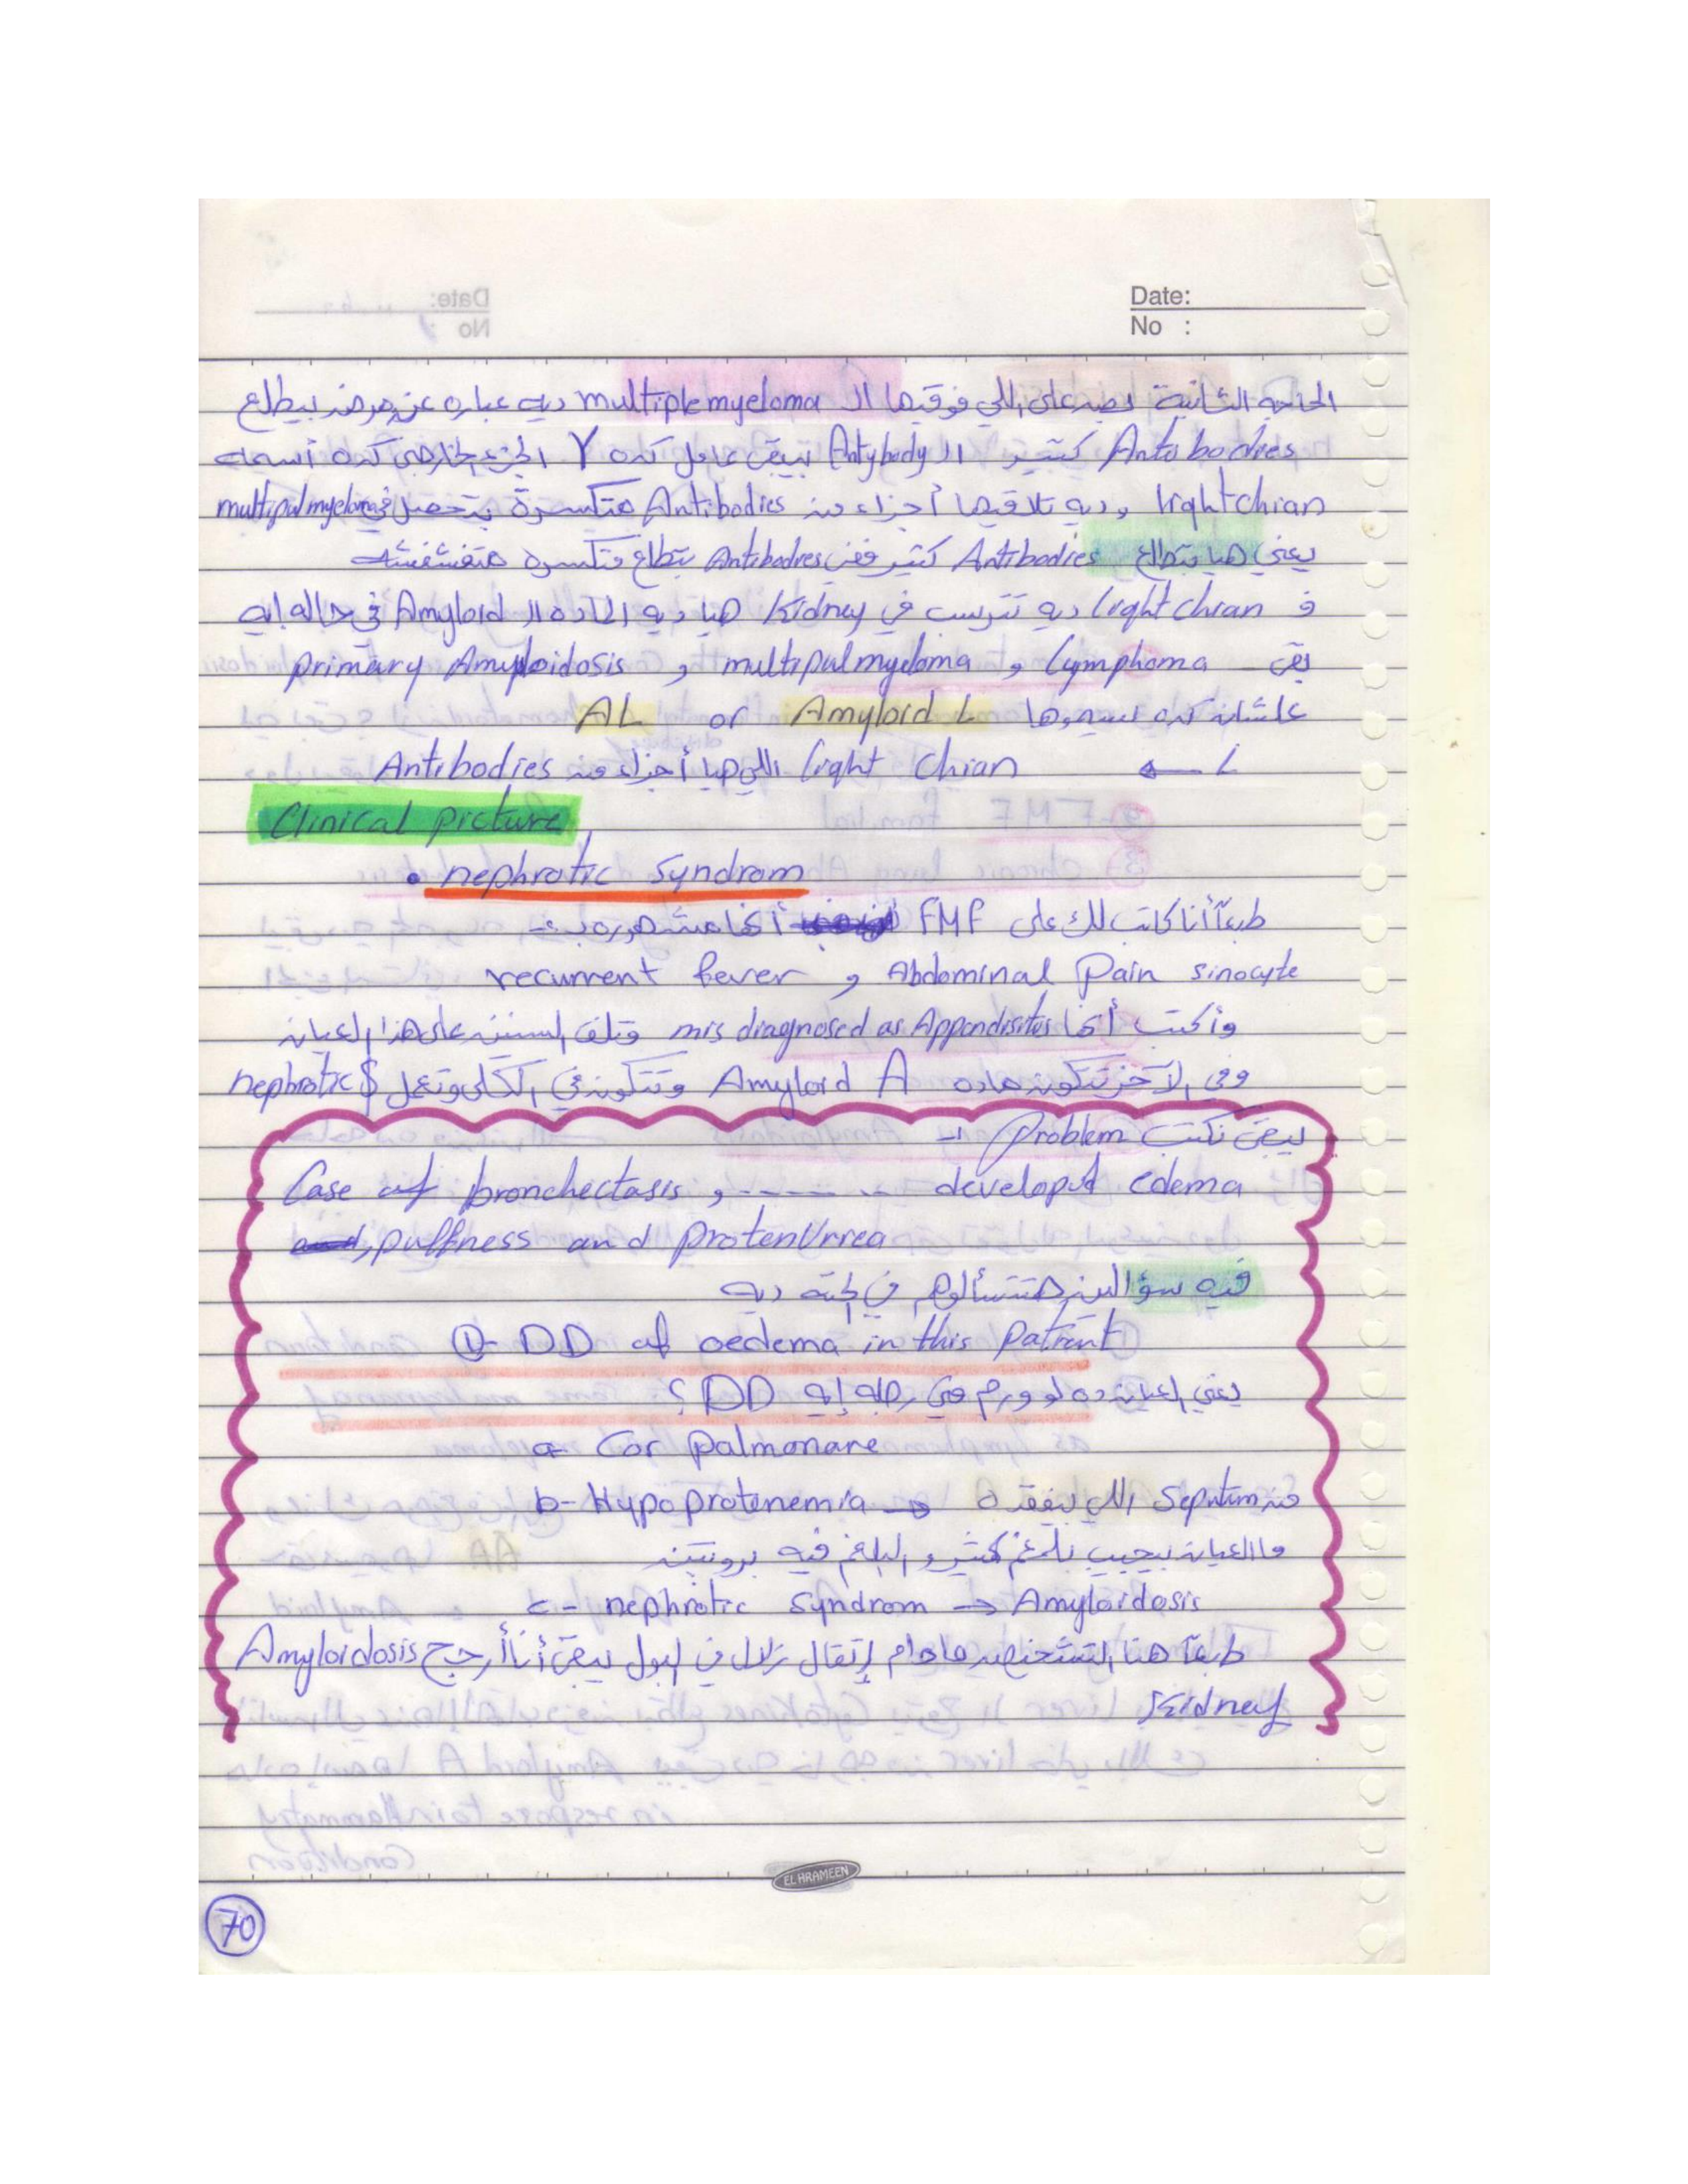 Date:
No :
الحاجه الثانية بصه على اللي فوقيها الـ multiple myeloma ديه عباره عن مرض بيطلع
Anti bodies كتير و الـ Antybody بيبقى عامل كده Y الجزء الخارجى كده أسمه
light chian و ديه تلاقيها أجزاء من Antibodies متكسرة بتحصل في multipulmyeloma
يعني هيا بتطلع Antibodies كتير ففى Antibodies بتطلع متكسره متفشفشه
ف light chian ديه تترسب في Kidney هيا ديه المادة الـ Amyloid فى حاله ايه
بقى lymphoma و multipulmyeloma و primary Amyloidosis
علشان كده بيسموها Amyloid L or AL
L ← light chian اللي هيا أجزاء من Antibodies
Clinical picture
• nephrotic Syndrom
طبعاً أنا كاتب لك على FMF أنها مشهوره بـ :-
recurrent fever و Abdominal Pain sinocyte
وأكتب أنها mis diagnosed as Appendisitus وتلف السنين على هذا العيان
وفي الآخر تتكون ماده Amyloid A وتتكون في الكلى وتعمل nephrotic $
يبقى نكتب problem :-
Case of bronchectasis , - - - - - - developed edema
, puffness and protenUrrea
فيه سؤالين هتتسألوهم في الحته ديه
①- DD of oedema in this patient
يعني العيان ده لو ورم في رجله إيه DD ؟
a- Cor palmonare
b- Hypoprotenemia → من Seputum اللي بيفقده
ماالعيان بيجيب بلغم كتير و البلغم فيه بروتين
c- nephrotic Syndrom → Amyloidosis
طبعاً هنا التشخيص مادام إتقال زلال في البول يبقى أنا أرجح Amyloidosis
Kidney
EL HRAMEEN
70